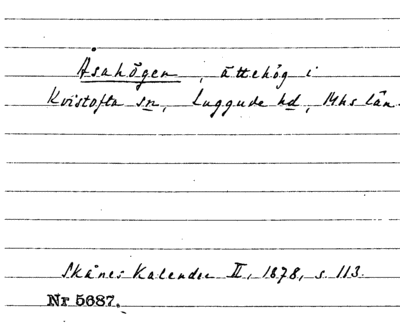 Åsahögen, ättehög i
Kvistofta sn, Luggude hd, Mhs län.
Skånes Kalender II, 1878, s. 113.
Nr 5687.